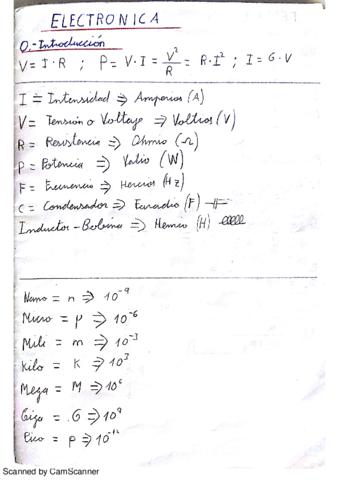 ELECTRONICA
0.-Introducción
V = I · R ; P = V · I = V²/R = R · I² ; I = G · V
I = Intensidad => Amperios (A)
V = Tensión o Voltaje => Voltios (V)
R = Resistencia => Ohmio (Ω)
P = Potencia => Vatio (W)
F = Frecuencia => Hercios (Hz)
C = Condensador => Faradio (F)
Inductor - Bobina => Henrio (H)
Nano = n => 10⁻⁹
Micro = μ => 10⁻⁶
Mili = m => 10⁻³
Kilo = K => 10³
Mega = M => 10⁶
Giga = G => 10⁹
Pico = p => 10⁻¹²
Scanned by CamScanner